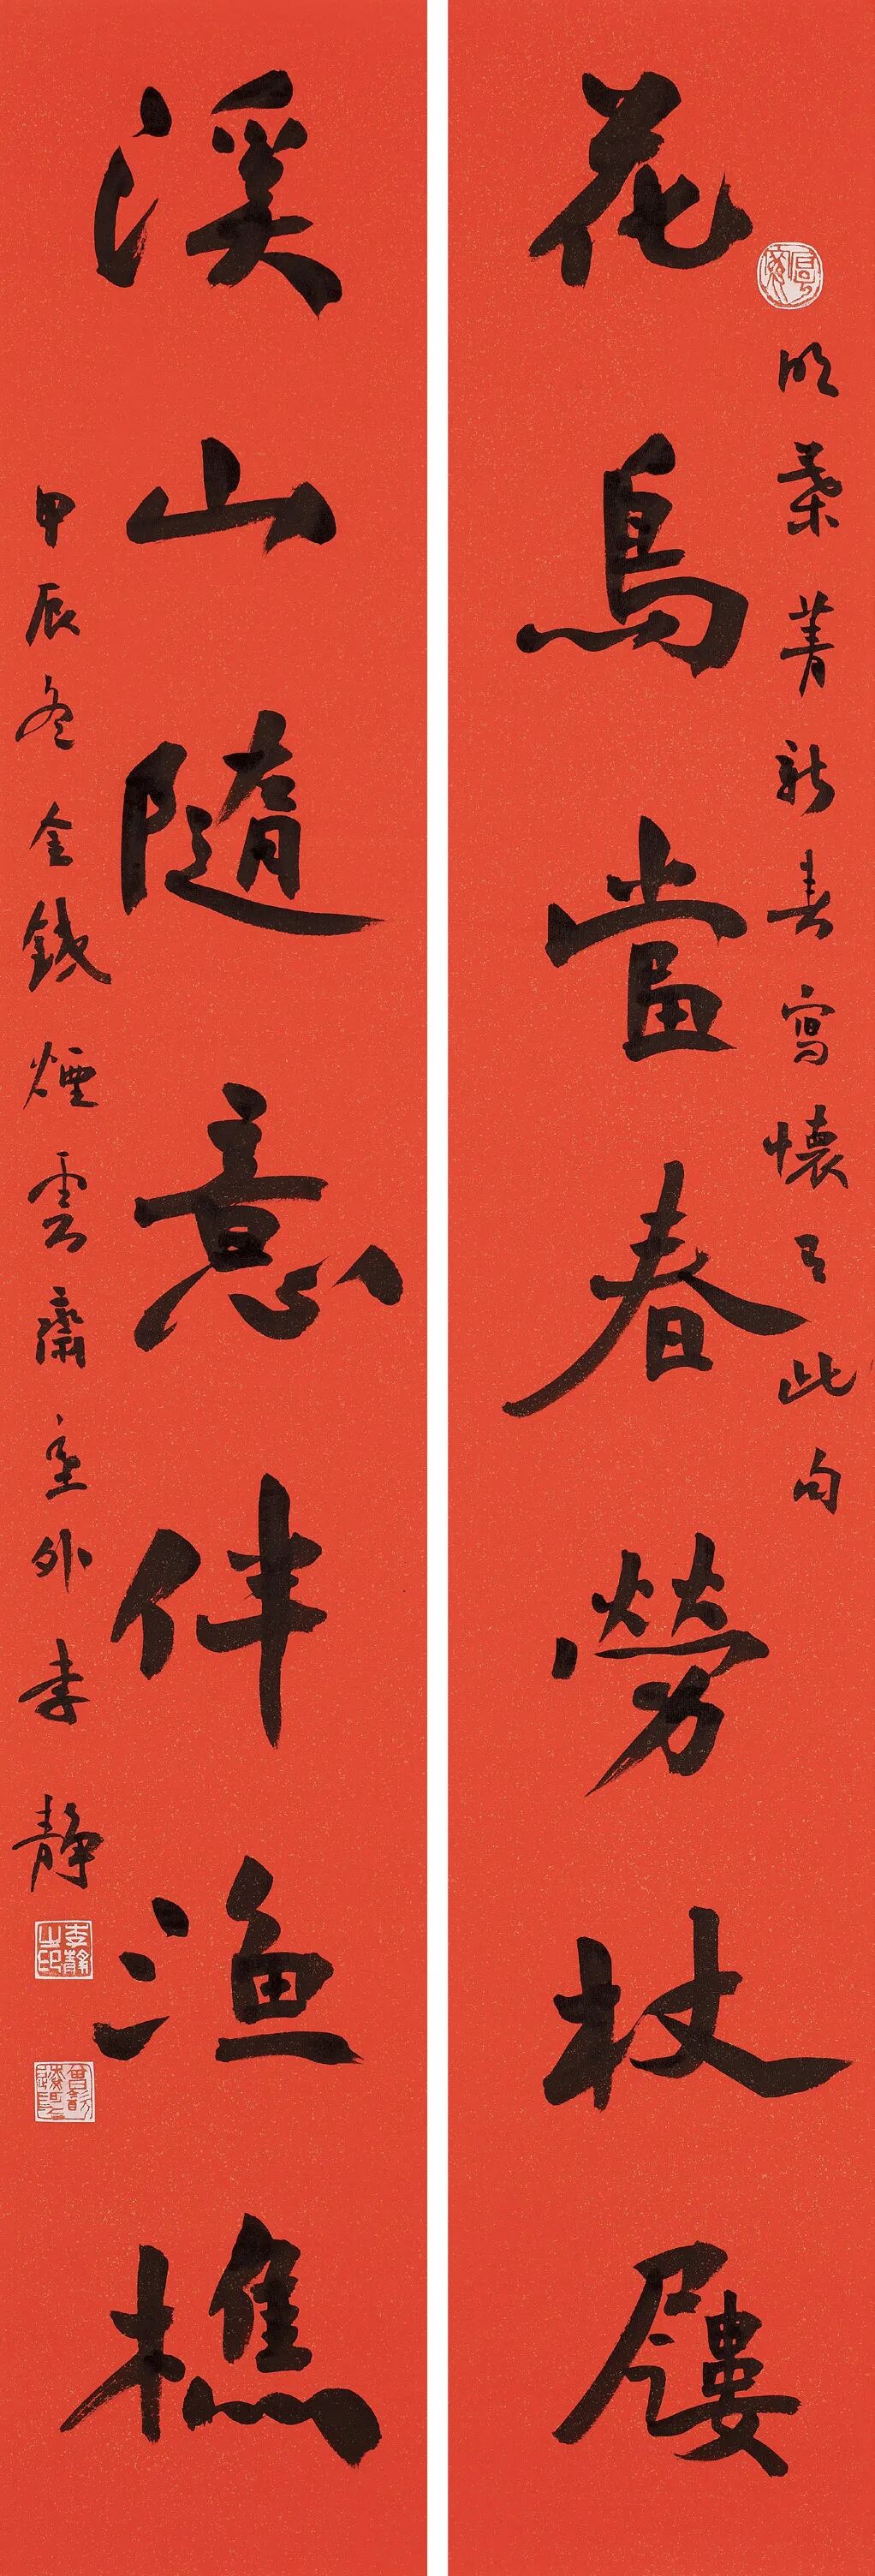 花鳥當春勞杖屨
明葉菁新春寫懷有此句
溪山隨意伴漁樵
甲辰冬金鐵煙雲齋主外李靜
李靜之印